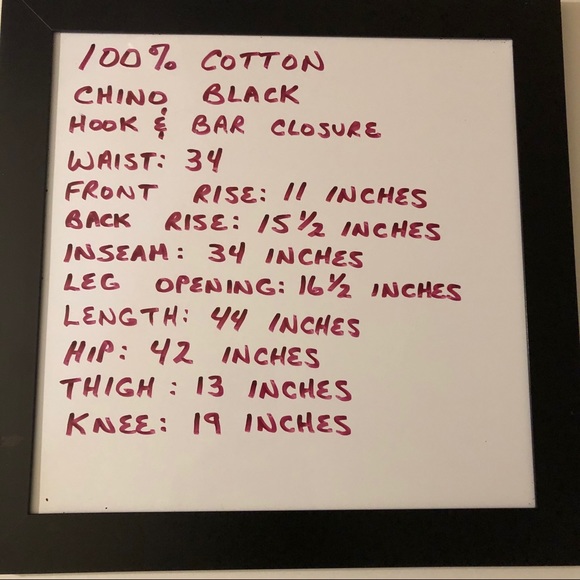 100% COTTON
CHINO BLACK
HOOK & BAR CLOSURE
WAIST: 34
FRONT RISE: 11 INCHES
BACK RISE: 15 1/2 INCHES
INSEAM: 34 INCHES
LEG OPENING: 16 1/2 INCHES
LENGTH: 44 INCHES
HIP: 42 INCHES
THIGH: 13 INCHES
KNEE: 19 INCHES